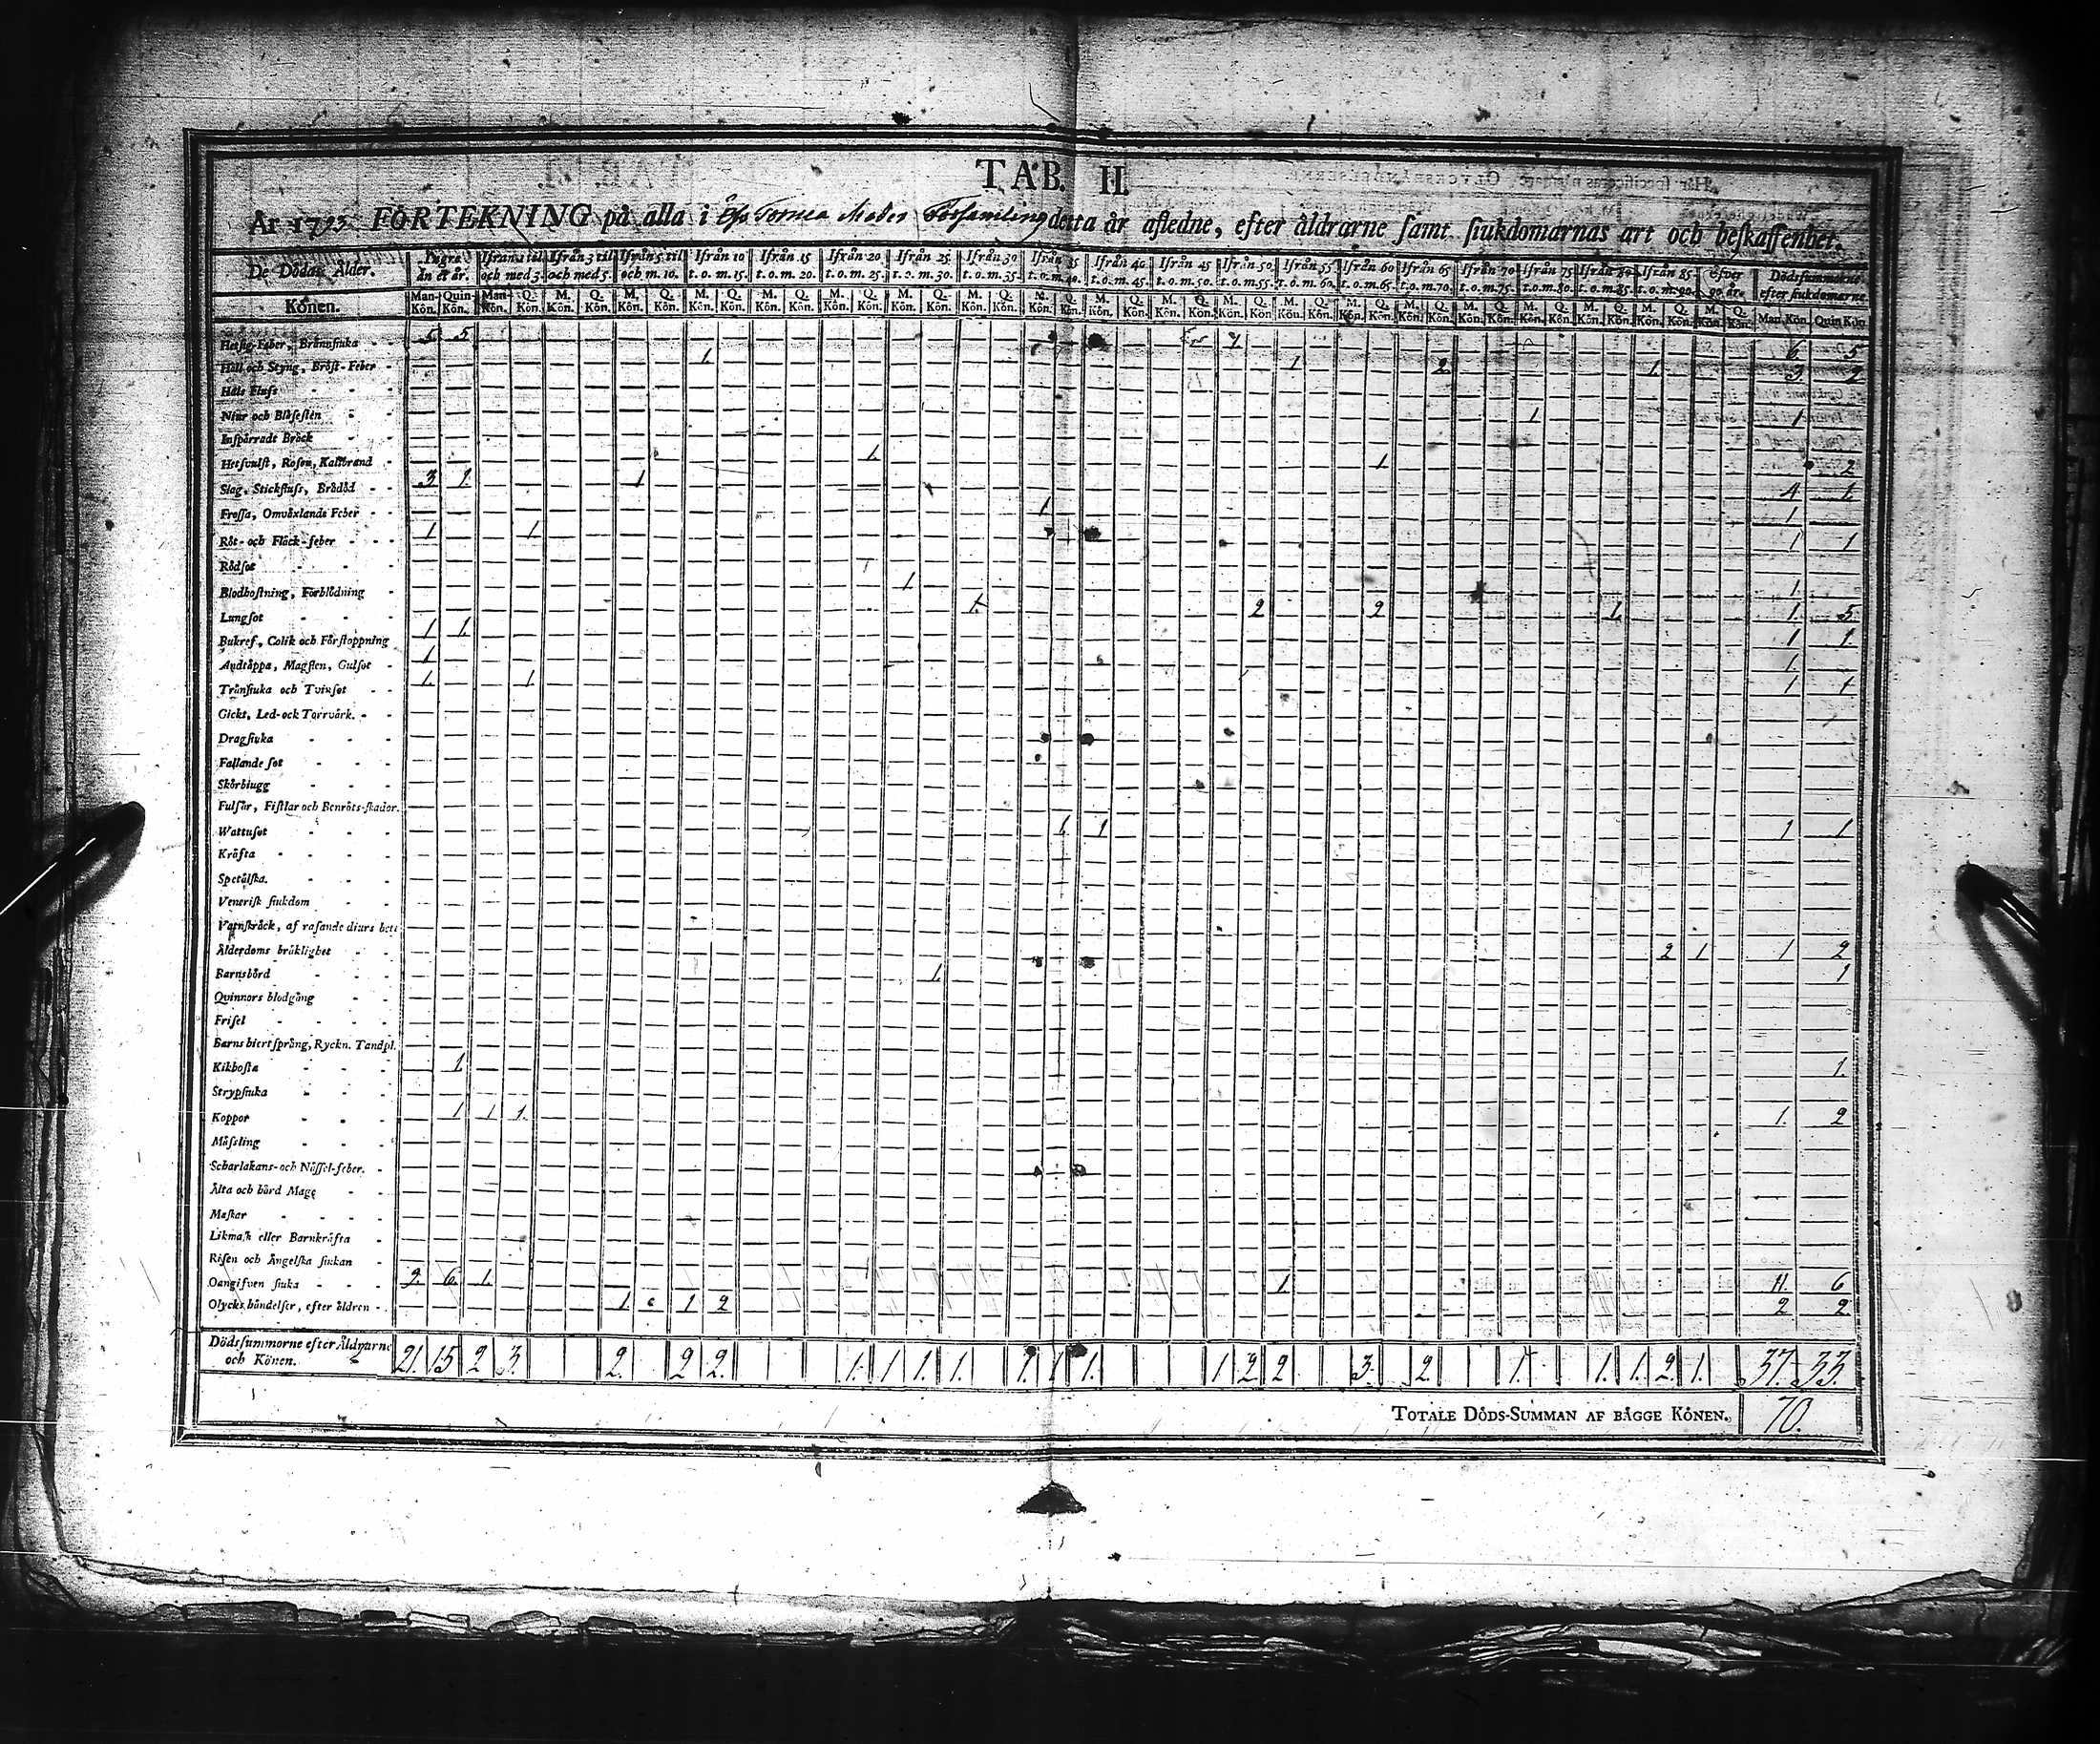 TAB. II.
År 1793 FÖRTEKNING på alla i Öfv Torneå Moder Församling detta år afledne, efter åldrarne samt siukdomarnas art och beskaffenhet.
De Dödas Ålder. Yngre än et år. Ifrån 1 til och med 3. Ifrån 3 til och med 5. Ifrån 5 til och m. 10. Ifrån 10 t. o. m. 15. Ifrån 15 t. o. m. 20. Ifrån 20 t. o. m. 25. Ifrån 25 t. o. m. 30. Ifrån 30 t. o. m. 35. Ifrån 35 t. o. m. 40. Ifrån 40 t. o. m. 45. Ifrån 45 t. o. m. 50. Ifrån 50 t. o. m. 55. Ifrån 55 t. o. m. 60. Ifrån 60 t. o. m. 65. Ifrån 65 t. o. m. 70. Ifrån 70 t. o. m. 75. Ifrån 75 t. o. m. 80. Ifrån 80 t. o. m. 85. Ifrån 85 t. o. m. 90. Öfver 90 år. Dödssummorne efter siukdomarne.
Könen. Man-Kön. Quin-Kön. Man-Kön. Q. Kön. M. Kön. Q. Kön. M. Kön. Q. Kön. M. Kön. Q. Kön. M. Kön. Q. Kön. M. Kön. Q. Kön. M. Kön. Q. Kön. M. Kön. Q. Kön. M. Kön. Q. Kön. M. Kön. Q. Kön. M. Kön. Q. Kön. M. Kön. Q. Kön. M. Kön. Q. Kön. M. Kön. Q. Kön. M. Kön. Q. Kön. M. Kön. Q. Kön. M. Kön. Q. Kön. M. Kön. Q. Kön. M. Kön. Q. Kön. M. Kön. Q. Kön. Man Kön. Quin Kön.
Hetsig Feber, Brännsiuka 5 5 6 5
Håll och Styng, Bröst-Feber 1. 1 2 1. 3. 2
Hals Fluss
Niur och Blåsesten 1 1
Inspärradt Bråck
Hetsvulst, Rosen, Kallbrand 1. 1 2
Slag, Stickfluss, Brådöd 3 1. 1 4 1.
Frossa, Omväxlande Feber 1 1
Röt- och Fläck-feber 1 1 1 1
Rödsot
Blodhostning, Förblödning 1 1.
Lungsot 1. 2 2 1. 1. 5.
Bukref, Colik och Förstoppning 1 1. 1 1.
Andtäppa, Magsten, Gulsot 1 1.
Trånsiuka och Tvinsot 1. 1 1 1
Gickt, Led- och Torrvärk.
Dragsiuka
Fallande sot
Skörbiugg
Fulsår, Fistlar och Benröts-skador.
Wattusot 1. 1 1 1
Kräfta
Spetälska.
Venerisk siukdom
Vatnskräck, af rasande diurs bett
Ålderdoms bräklighet 2 1 1 2
Barnsbörd 1. 1
Quinnors blodgång
Frisel
Barns hiertsprång, Ryckn. Tandpl.
Kikhosta 1. 1.
Strypsiuka
Koppor 1 1 1. 1. 2
Mässling
Scharlakans- och Nässel-feber.
Älta och hård Mage
Maskar
Likmask eller Barnkräfta
Risen och Ängelska siukan
Oangifven siuka 9. 6. 1. 1 11. 6
Olycks händelser, efter åldren 1. 1 2 2 2.
Dödssummorne efter Åldrarne och Könen. 21. 15 2 3. 2. 2 2. 1. 1 1. 1. 1. 1 1. 1 2 2 3. 2 1. 1. 1. 2. 1. 37. 33.
TOTALE DÖDS-SUMMAN AF BÄGGE KÖNEN. 70.